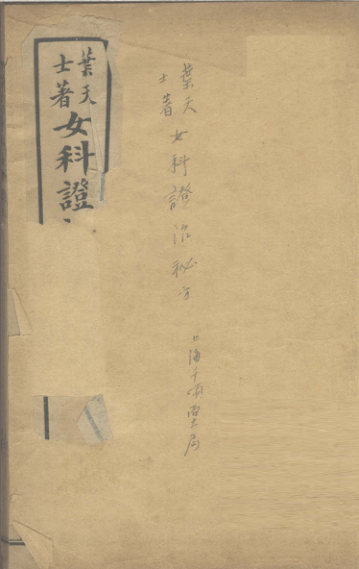 上海千頃書局
葉天士著
女科證治秘方
葉天士著
女科證